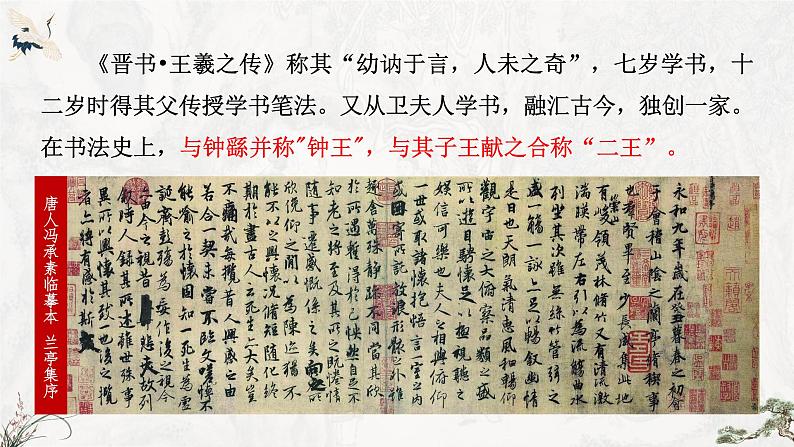 《晋书•王羲之传》称其“幼讷于言，人未之奇”，七岁学书，十
二岁时得其父传授学书笔法。又从卫夫人学书，融汇古今，独创一家。
在书法史上，与钟繇并称"钟王"，与其子王献之合称“二王”。
永和九年歲在癸丑暮春之初會
于會稽山陰之蘭亭脩稧事
也群賢畢至少長咸集此地
有崇山峻領茂林脩竹又有清流激
湍暎帶左右引以為流觴曲水
列坐其次雖無絲竹管弦之
盛一觴一詠亦足以暢敘幽情
是日也天朗氣清惠風和暢仰
觀宇宙之大俯察品類之盛
所以遊目騁懷足以極視聽之
娛信可樂也夫人之相與俯仰
一世或取諸懷抱悟言一室之內
或因寄所託放浪形骸之外雖
趣舍萬殊靜躁不同當其欣
於所遇蹔得於己怏然自足不
知老之將至及其所之既惓情
隨事遷感慨係之矣向之所
欣俛仰之閒以為陳迹猶不
能不以之興懷況脩短隨化終
期於盡古人云死生亦大矣豈
不痛哉每攬昔人興感之由
若合一契未嘗不臨文嗟悼不
能喻之於懷固知一死生為虛
誕齊彭殤為妄作後之視今
亦由今之視昔悲夫故列
敘時人錄其所述雖世殊事
異所以興懷其致一也後之攬
者亦將有感於斯文
唐人冯承素临摹本 兰亭集序